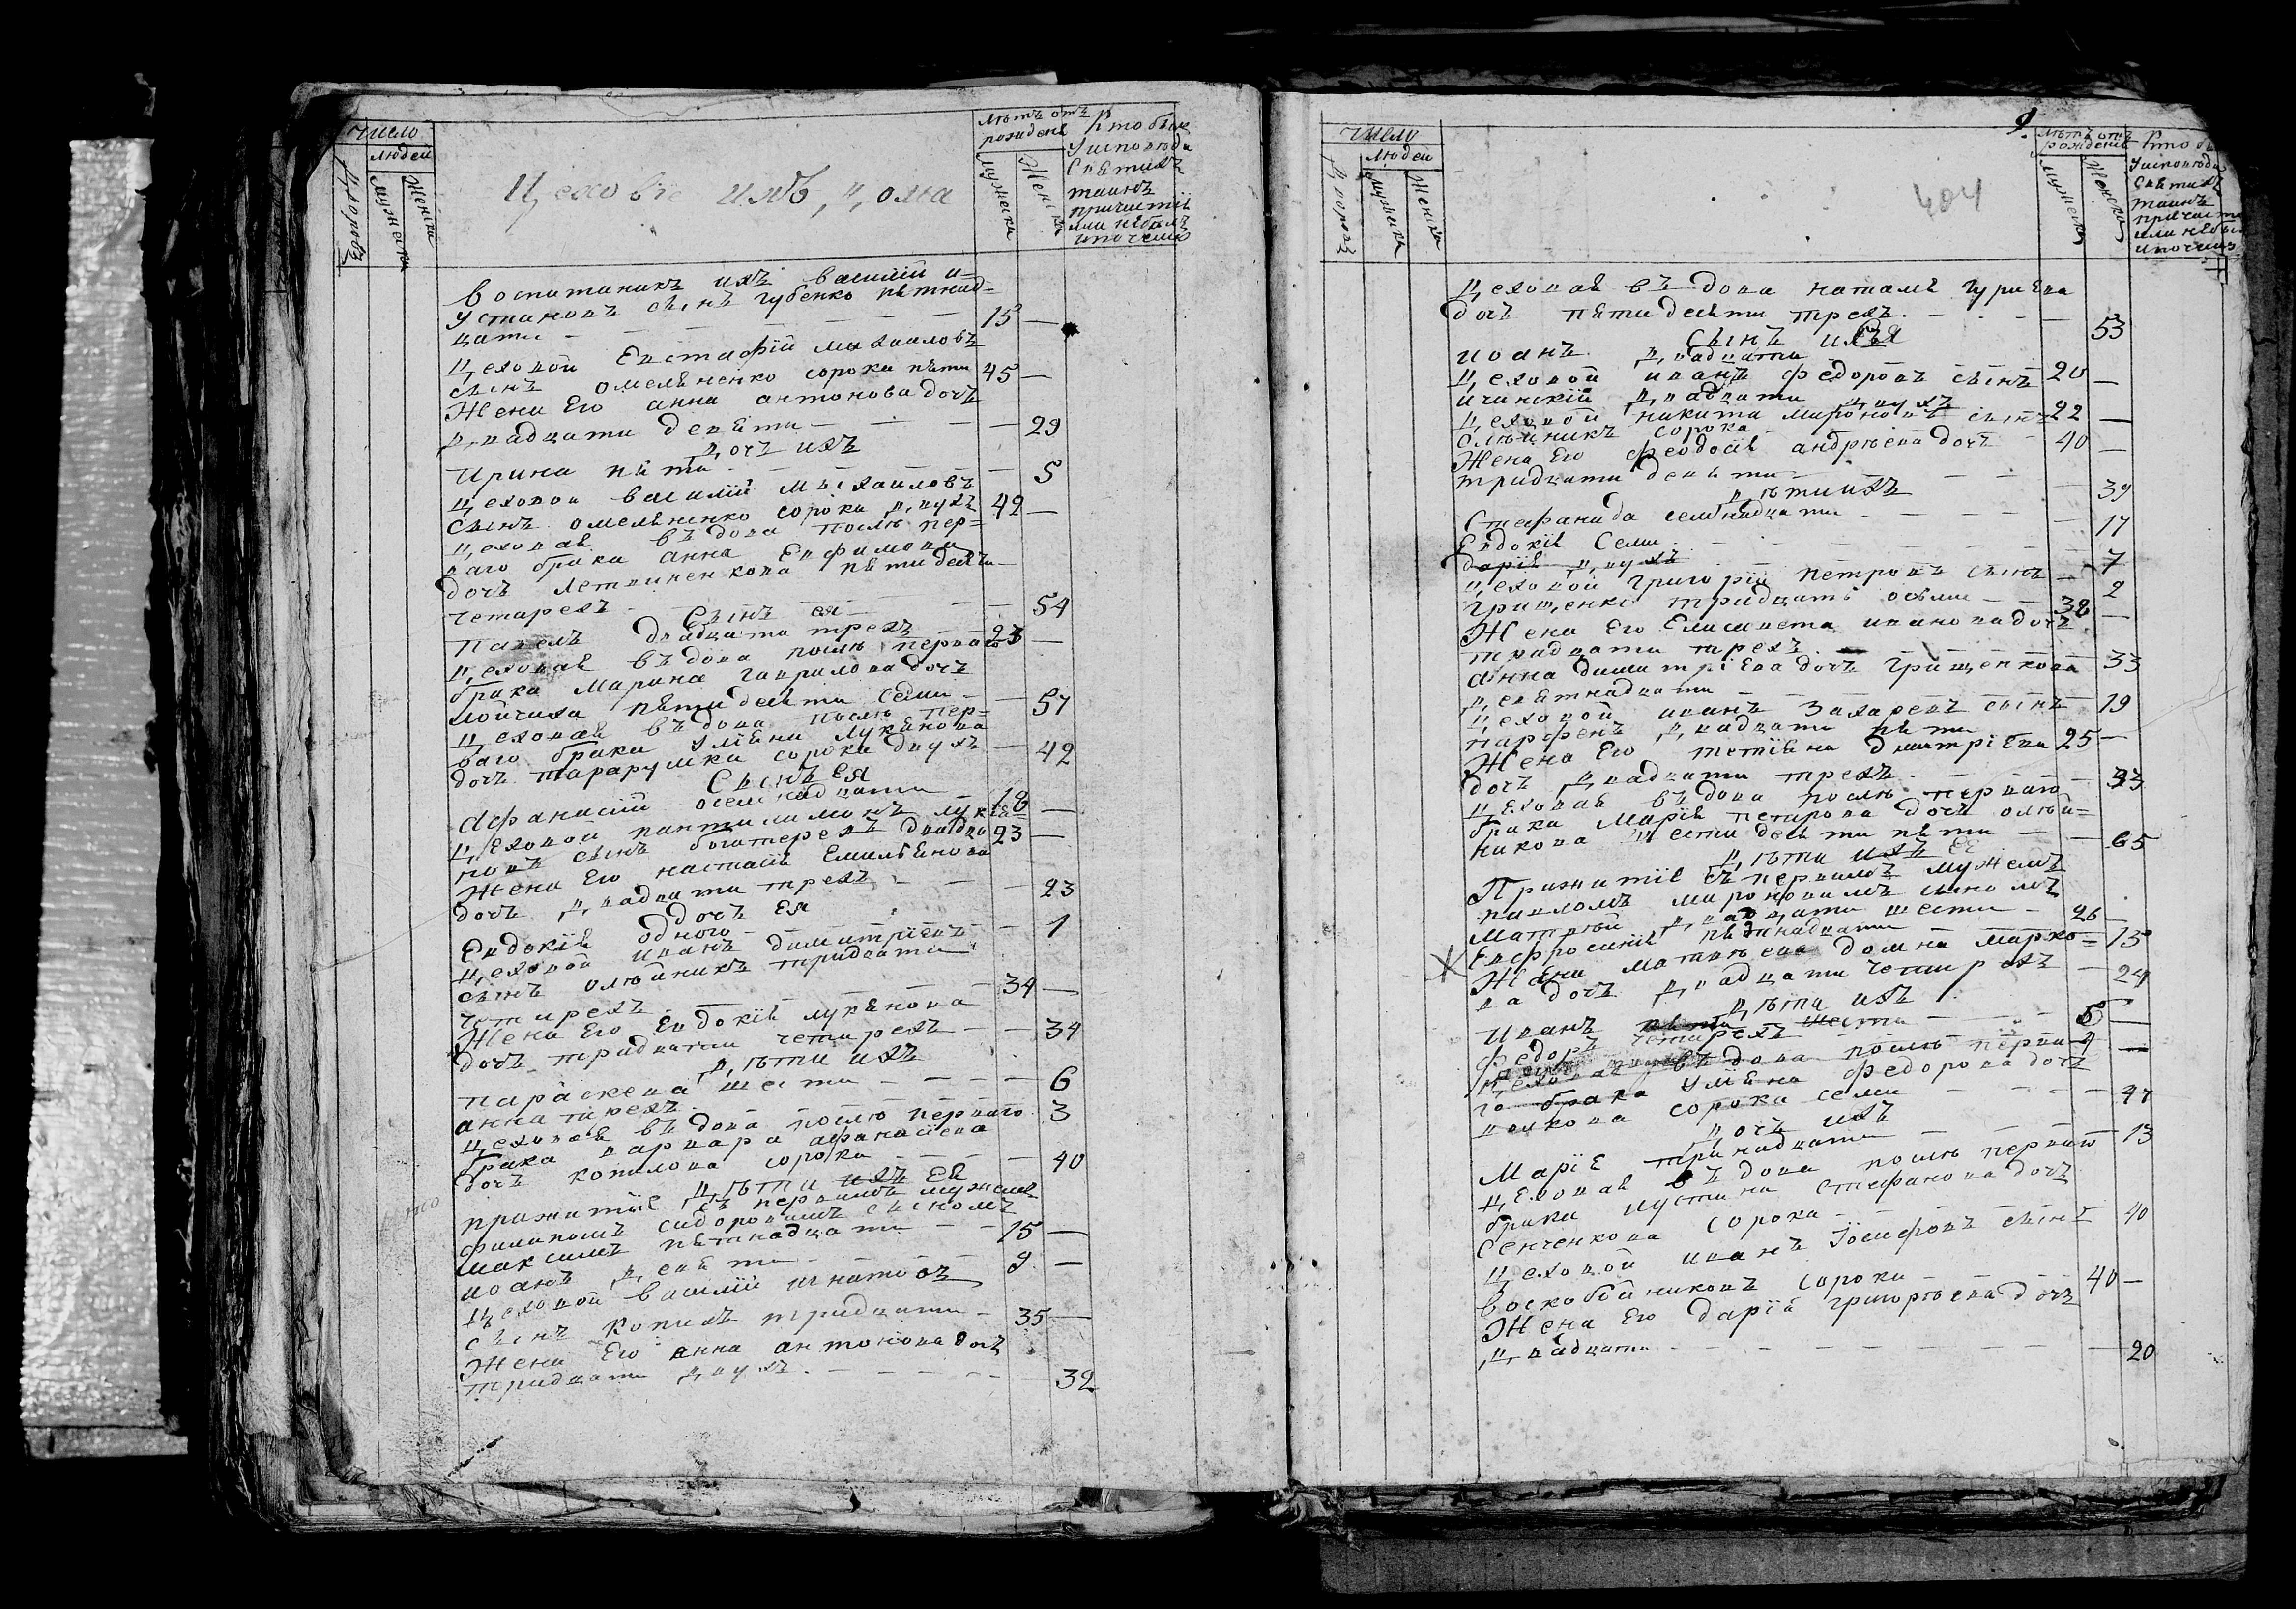 Число
людей
Дворовъ
Мужеска
Женска
Цеховіе имѣ, д, ома
лѣтъ отъ
рожденѣ
Мужеска
Женска
Кто былъ
Уисповѣди
Свѣтихъ
таинъ
причастіѣ
или небылъ
ипочему
воспитаникъ ихъ василій и=
Устиновъ сынъ губенко пѣтнад=
цати — 15 —
Цеховой Евстафій михаиловъ
сынъ омелѣненко сорока пѣти 45 —
Жена Его анна антонова дочъ
д,вадцати девѣти — 29
д,очъ ихъ
Ирина пѣти — 5
ц,еховой василій михаиловъ
сынъ омелѣненко сорока д,вухъ 42 —
ц,еховаѣ въдова послѣ пер=
ваго брака анна Евфимова
дочъ Летвиненкова пѣтидесѣти
четарехъ — 54
сынъ ея
павелъ двадцати трехъ 23 —
ц,еховаѣ въдова послѣ перваго
брака Марина гаврилова дочъ
мойчиха пѣтидесѣти седми — 57
ц,еховаѣ въдова послѣ пер=
ваго брака Улѣѣна Лукѣнова
дочъ тарарушка сорока двухъ — 42
Сынъ Ея
афанасій осемнадцати — 18 —
ц,еховой пантилимонъ лукѣа=
новъ сынъ богатеревъ двадца 23 —
Жена Его настасіѣ Емилѣѣнова
дочъ д,вадцати трехъ — 23
Дочъ Ея
Евдокіѣ одного — 1
ц,еховой иванъ димитріевъ
сынъ олѣйникъ тридцати
четирехъ — 34 —
Жена Его Евдокіѣ лукѣнова
дочъ тридцати четирехъ — 34
д,ѣти ихъ
параскева шести — 6
анна трехъ — 3
ц,еховаѣ въдова послѣ перваго
брака варвара афанасіева
дочъ копилова сорока — 40
д,ѣти ихъ Еѣ
прижитіѣ съ первимъ мужемъ
филипомъ сидоровимъ синомъ
максимъ пѣтнадцати — 15 —
иоанъ д,евѣти — 9 —
Цеховой василій игнатовъ
сынъ копилъ тридцати — 35 —
Жена Его анна антонова дочъ
тридцати д,вухъ — 32
9.
Число
людей
Дворовъ
Мужеска
Женска
404
лѣтъ отъ
рожденѣ
Мужеска
Женска
Кто бы
Уисповѣди
Свѣтихъ
таинъ
причасти
или небыл
ипочему
ц,еховаѣ въдова наталѣ гуриева
дочъ пѣтидесѣти трехъ — 53
Сынъ ихъ
иоанъ д,вадцати — 20 —
ц,еховой иванъ федоровъ сынъ
ичанскій д,вадцати д,вухъ 22 —
ц,еховой никита мироновъ сынъ
олѣйникъ сорока — 40 —
Жена Его феодосіѣ андрѣева дочъ
тридцати девѣти — 39
д,ѣти ихъ
Стефанида семнадцати — 17
Евдокіѣ Семи — 7
даріѣ д,вухъ — 2
ц,еховой григорій петровъ сынъ
грищенко тридцать осьми — 38 —
Жена Его Елисавета иванова дочъ
тридцати трехъ — 33
анна димитріева дочъ грищенкова
д,евѣтнадцати — 19
ц,еховой иванъ Захаревъ сынъ
парфенъ д,вадцати пѣти 25 —
Жена Его тетіѣна Дмитріева
дочъ д,вадцати трехъ — 23
ц,еховаѣ въдова послѣ перваго
брака Маріѣ петрова дочъ олѣй=
никова шестидесѣти пѣти — 65
д,ѣти ихъ ЕЕ
Прижитіѣ съ первимъ мужемъ
павломъ мироновимъ синомъ
матфей д,вадцати шести — 26 —
Евфросиніѣ пѣтнадцати — 15
Х Жена матвѣева домна марко=
ва дочъ д,вадцати четирехъ — 24
д,ѣти ихъ
Иванъ пѣти — 5 —
федоръ четирехъ шести
ц,еховаѣ въдова послѣ перва —
го брака Улѣѣна федорова дочъ
волкова сорока семи — 47
д,очъ ихъ
Маріѣ тринадцати — 13
ц,еховаѣ въдова послѣ перваго
брака иустина Стефанова дочъ
Сенченкова сорока — 40
Ц,еховой иванъ Іосифовъ сынъ
воскобойниковъ сорока — 40 —
Жена Его даріѣ григорѣева дочъ
д,вадцати — 20